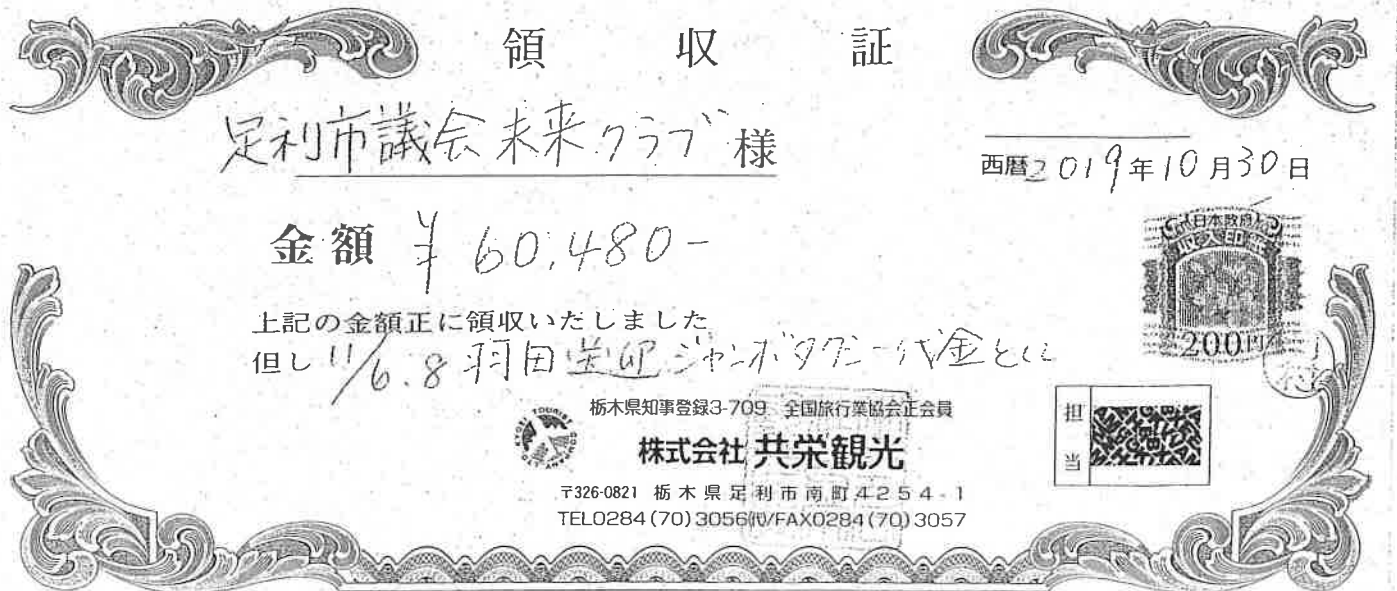 領収証
足利市議会未来クラブ様
西暦2019年10月30日
金額 ¥60,480-
上記の金額正に領収いたしました
但し 11/6.8 羽田送迎ジャンボタクシー代金とし
日本政府
収入印紙
200円
栃木県知事登録3-709 全国旅行業協会正会員
株式会社 共栄観光
〒326-0821 栃木県足利市南町4254-1
TEL0284(70)3056(代)/FAX0284(70)3057
担当